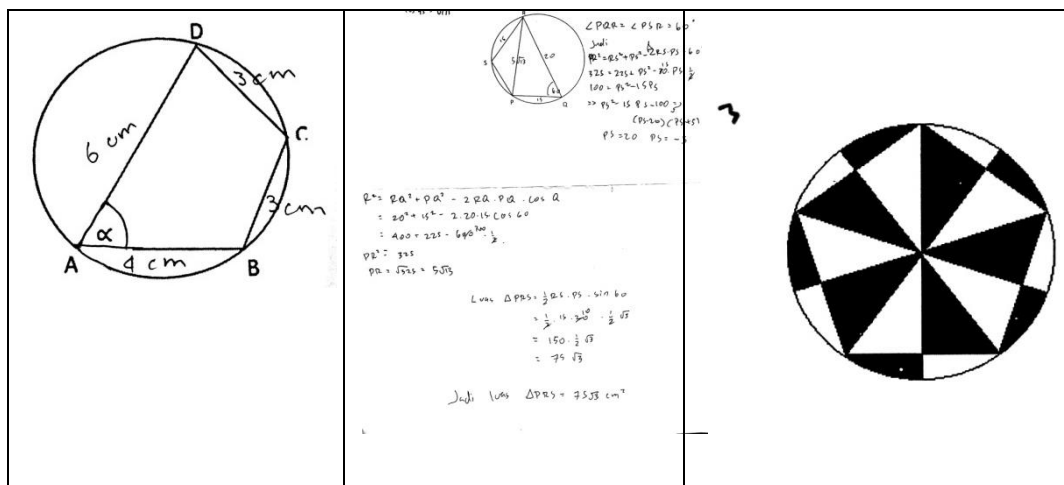 D
3 cm
6 cm
C
3 cm
α
A
4 cm
B
R
15
S
5√13
20
60
P
15
Q
∠PQR = ∠PSR = 60°
Jadi
PR² = RS² + PS² - 2RS.PS 60
325 = 225 + PS² - 30. PS. ½
100 = PS² - 15PS
=> PS² - 15 PS - 100 =
PS = 20 PS = -5
R² = RQ² + PQ² - 2RQ.PQ. cos Q
= 20² + 15² - 2.20.15 cos 60
= 400 + 225 - 600 . ½
PR² = 325
PR = √325 = 5√13
Luas ΔPRS = ½ RS. PS. sin 60
= 150. ½ √3
= 75 √3
Jadi luas ΔPRS = 75√3 cm²
3